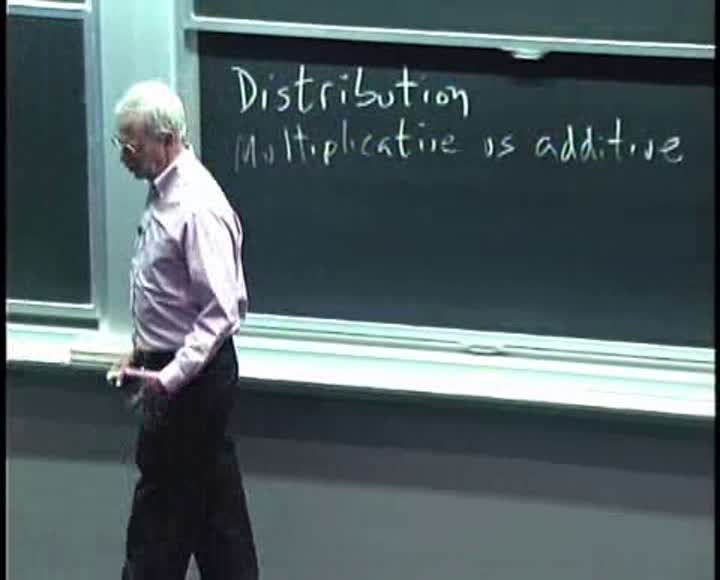 Distribution
Multiplicative vs additive